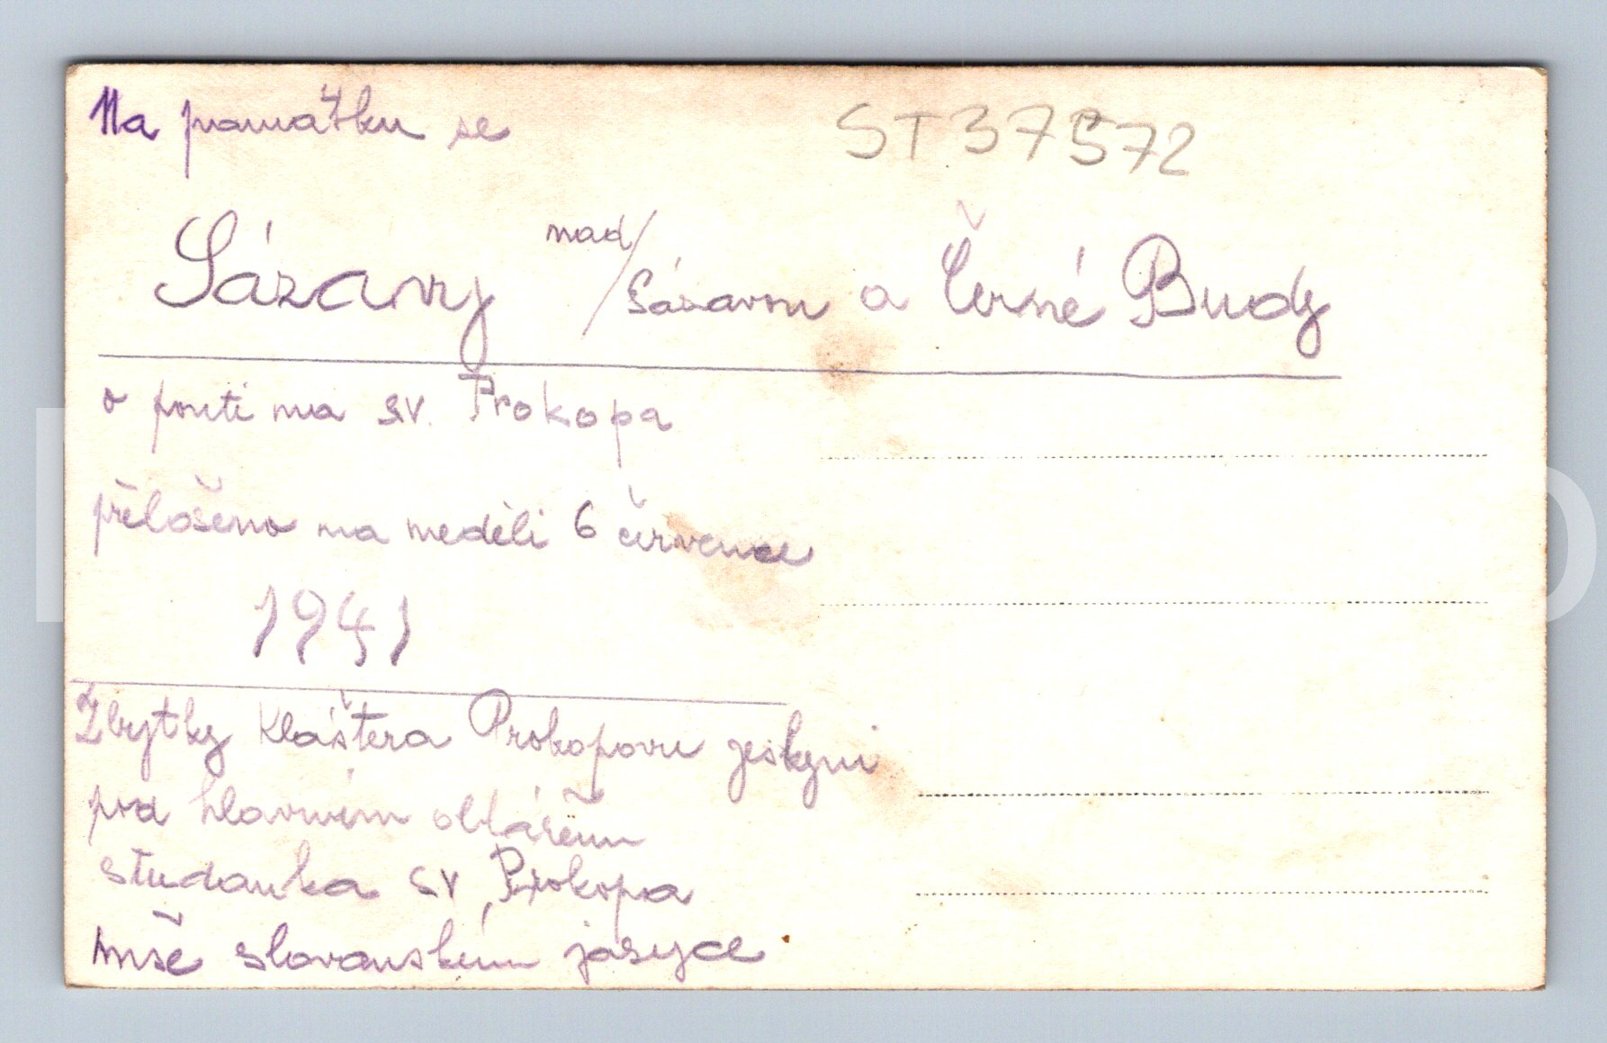 Na památku se
ST37572
Sázavy nad/Sázavou a Černé Budy
o pouti na sv. Prokopa
přeloženo na neděli 6 července
1941
Zbytky kláštera Prokopovu jeskyni
pod hlavním oltářem
studánka sv Prokopa
mše slovanském jasyce